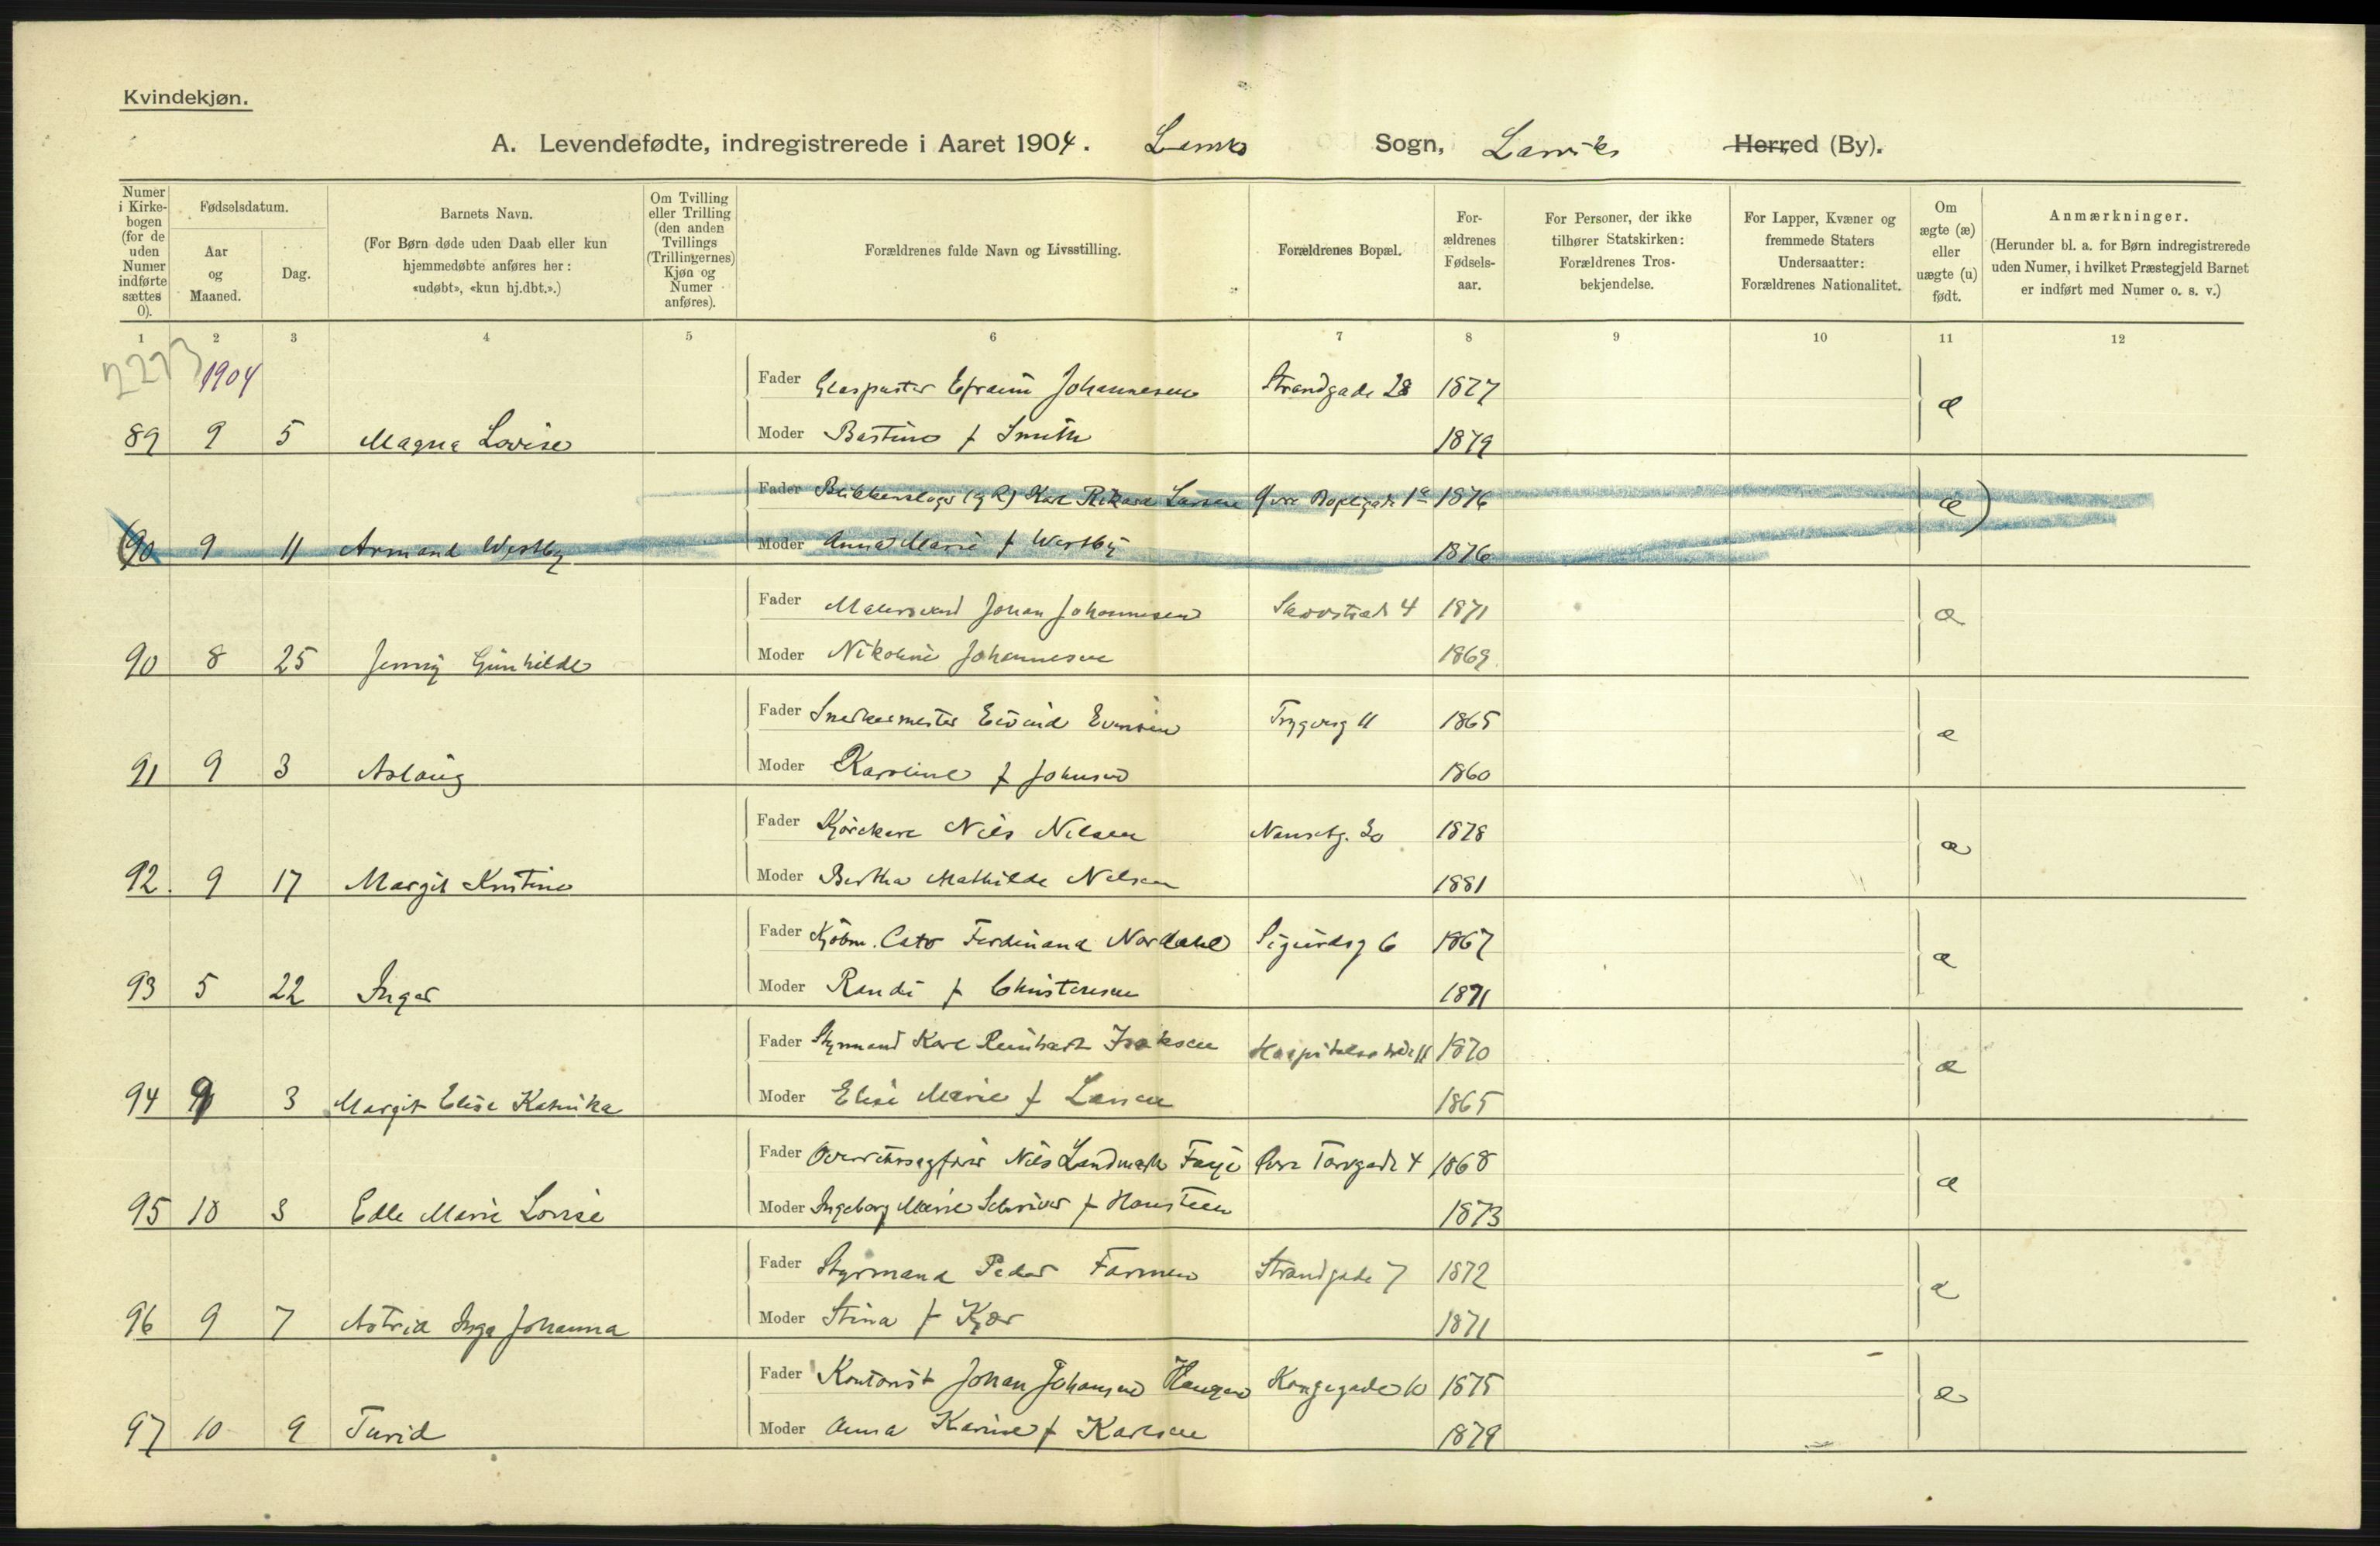 Kvindekjøn.
A. Levendefødte, indregistrerede i Aaret 1904. Larviks Sogn, Larviks Herred (By).
Numer i Kirkebogen (for de uden Numer indførte sættes 0).
Fødselsdatum.
Aar og Maaned.
Dag.
Barnets Navn.
(For Børn døde uden Daab eller kun hjemmedøbte anføres her: «udøbt», «kun hj.dbt.».)
Om Tvilling eller Trilling (den anden Tvillings (Trillingernes) Kjøn og Numer anføres).
Forældrenes fulde Navn og Livsstilling.
Forældrenes Bopæl.
For-ældrenes Fødsels-aar.
For Personer, der ikke tilhører Statskirken: Forældrenes Tros-bekjendelse.
For Lapper, Kvæner og fremmede Staters Undersaatter: Forældrenes Nationalitet.
Om ægte (æ) eller uægte (u) født.
Anmærkninger.
(Herunder bl. a. for Børn indregistrerede uden Numer, i hvilket Præstegjeld Barnet er indført med Numer o. s. v.)
1 2 3 4 5 6 7 8 9 10 11 12
1904
Fader Glaspuster Efraim Johannesen Strandgade 28 1877 æ
89 9 5 Magna Lovise Moder Bastine f Smith 1879
Fader Blikkenslager Karl Rikard Larsen 1876 æ)
(90 9 11 Armand Westby Moder Anna Marie f Westby 1876
Fader Malersvend Johan Johannesen 4 1871 æ
90 8 25 Jenny Gunhilde Moder Nikoline Johannesen 1869
Fader Snedkermester Eivind Evensen Trygvesg 11 1865 æ
91 9 3 Aslaug Moder Karoline f Johnsen 1860
Fader Nils Nilsen Nansetg. 30 1878 æ
92. 9 17 Margit Kristine Moder Bertha Mathilde Nilsen 1881
Fader Kjøbm. Cato Ferdinand Nordahl Sigurdsg 6 1867 æ
93 5 22 Inger Moder Randi f Christensen 1871
Fader Styrmand Karl Reinhart Isaksen Hospitalstræde 11 1870 æ
94 9 3 Margit Elise Katrika Moder Elise Marie f Larsen 1865
Fader Overretssagfører Nils Landmark Faye Øvre Torvgade 4 1868 æ
95 10 3 Edle Marie Lovise Moder Ingeborg Marie Schriver f Hansteen 1873
Fader Styrmand Peder Farmen Strandgade 7 1872 æ
96 9 7 Astrid Inga Johanna Moder Stina f Kjær 1871
Fader Kontorist Johan Johansen Haugen Kongegade 10 1875 æ
97 10 9 Turid Moder Anna Karine f Karlsen 1879